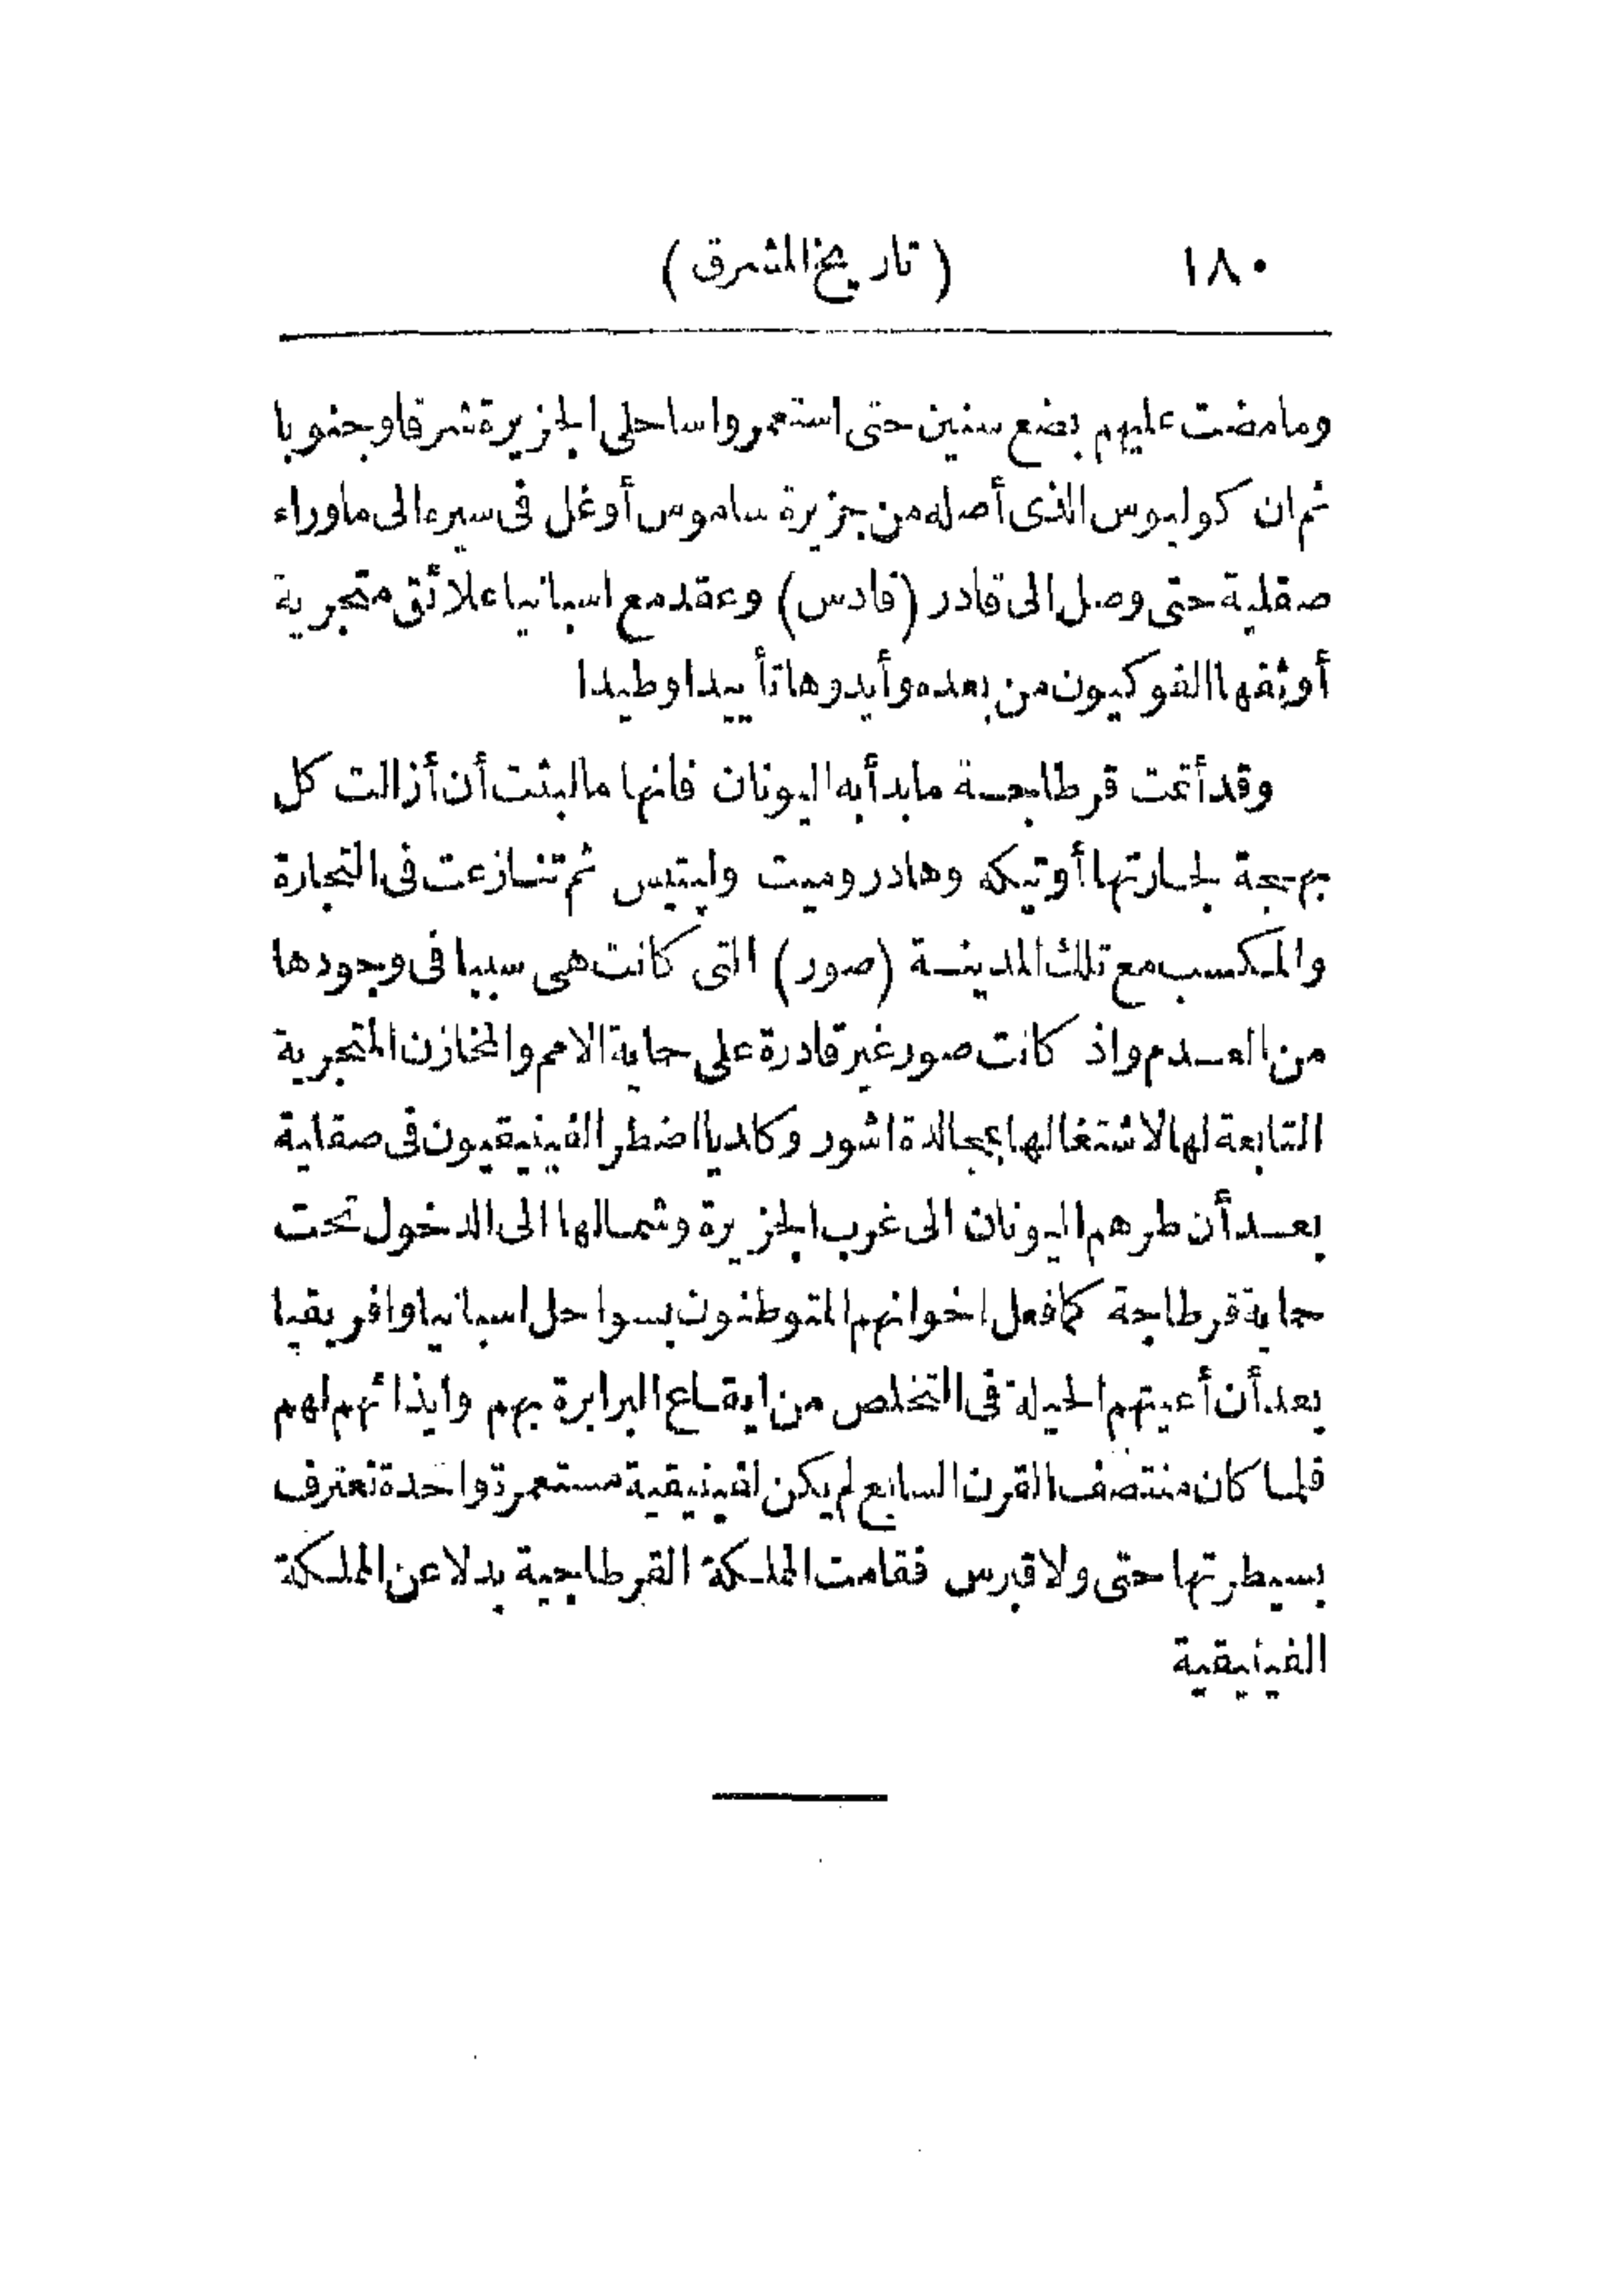 ١٨٠ (تاريخ المشرق)
ومامضت عليهم بضع سنين حتى استعمروا ساحلى الجزيرة شرقا وجنوبا
ثم ان كوليوس الذى أصله من جزيرة ساموس أوغل فى سيره الى ماوراء
صقلية حتى وصل الى قادر (قادس) وعقد مع اسبانيا علائق متجرية
أوثقها الفوكيون من بعده وأيدوها تأييدا وطيدا
وقد أتمت قرطاجة مابدأ به اليونان فانها مالبثت أن أزالت كل
بهجة لجارتها أوتيكه وهادروميت ولبتيس ثم تنازعت فى التجارة
والمكسب مع تلك المدينة (صور) التى كانت هى سببا فى وجودها
من العدم واذ كانت صور غير قادرة على حماية الامم والمخازن المتجرية
التابعة لها لاشتغالها بمجالدة اشور وكلديا اضطر الفينيقيون فى صقلية
بعد أن طرهم اليونان الى غرب الجزيرة وشمالها الى الدخول تحت
حماية قرطاجة كما فعل اخوانهم المتوطنون بسواحل اسبانيا وافريقيا
بعد أن أعيتهم الحيلة فى التخلص من ايقاع البرابرة بهم وايذائهم لهم
فلما كان منتصف القرن السابع لم يكن لفينيقية مستعمرة واحدة تعترف
بسيطرتها حتى ولا قبرس فقامت المملكة القرطاجية بدلا عن المملكة
الفينيقية